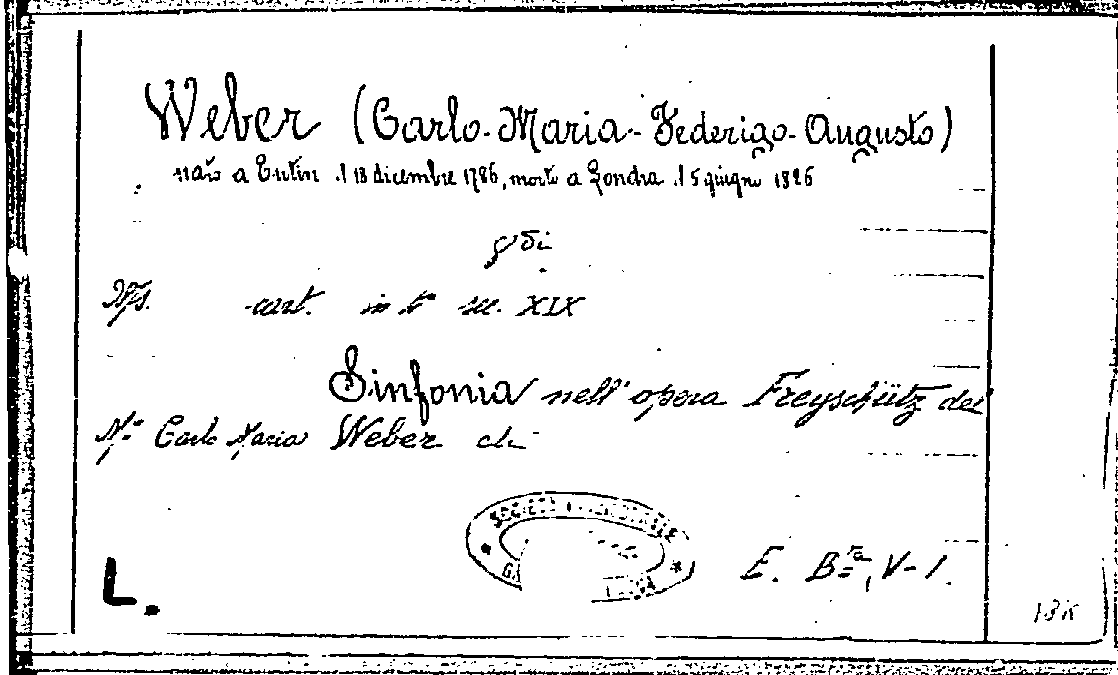 Weber (Carlo-Maria-Federigo-Augusto)
nato a Eutin il 18 dicembre 1786, morto a Londra il 5 giugno 1826
Ms. cart. in fo sec. XIX
Sinfonia nell'opera Freyschütz del
Mo Carlo Maria Weber
SOCIETÀ
L.
E. Bta, V-1.
18K